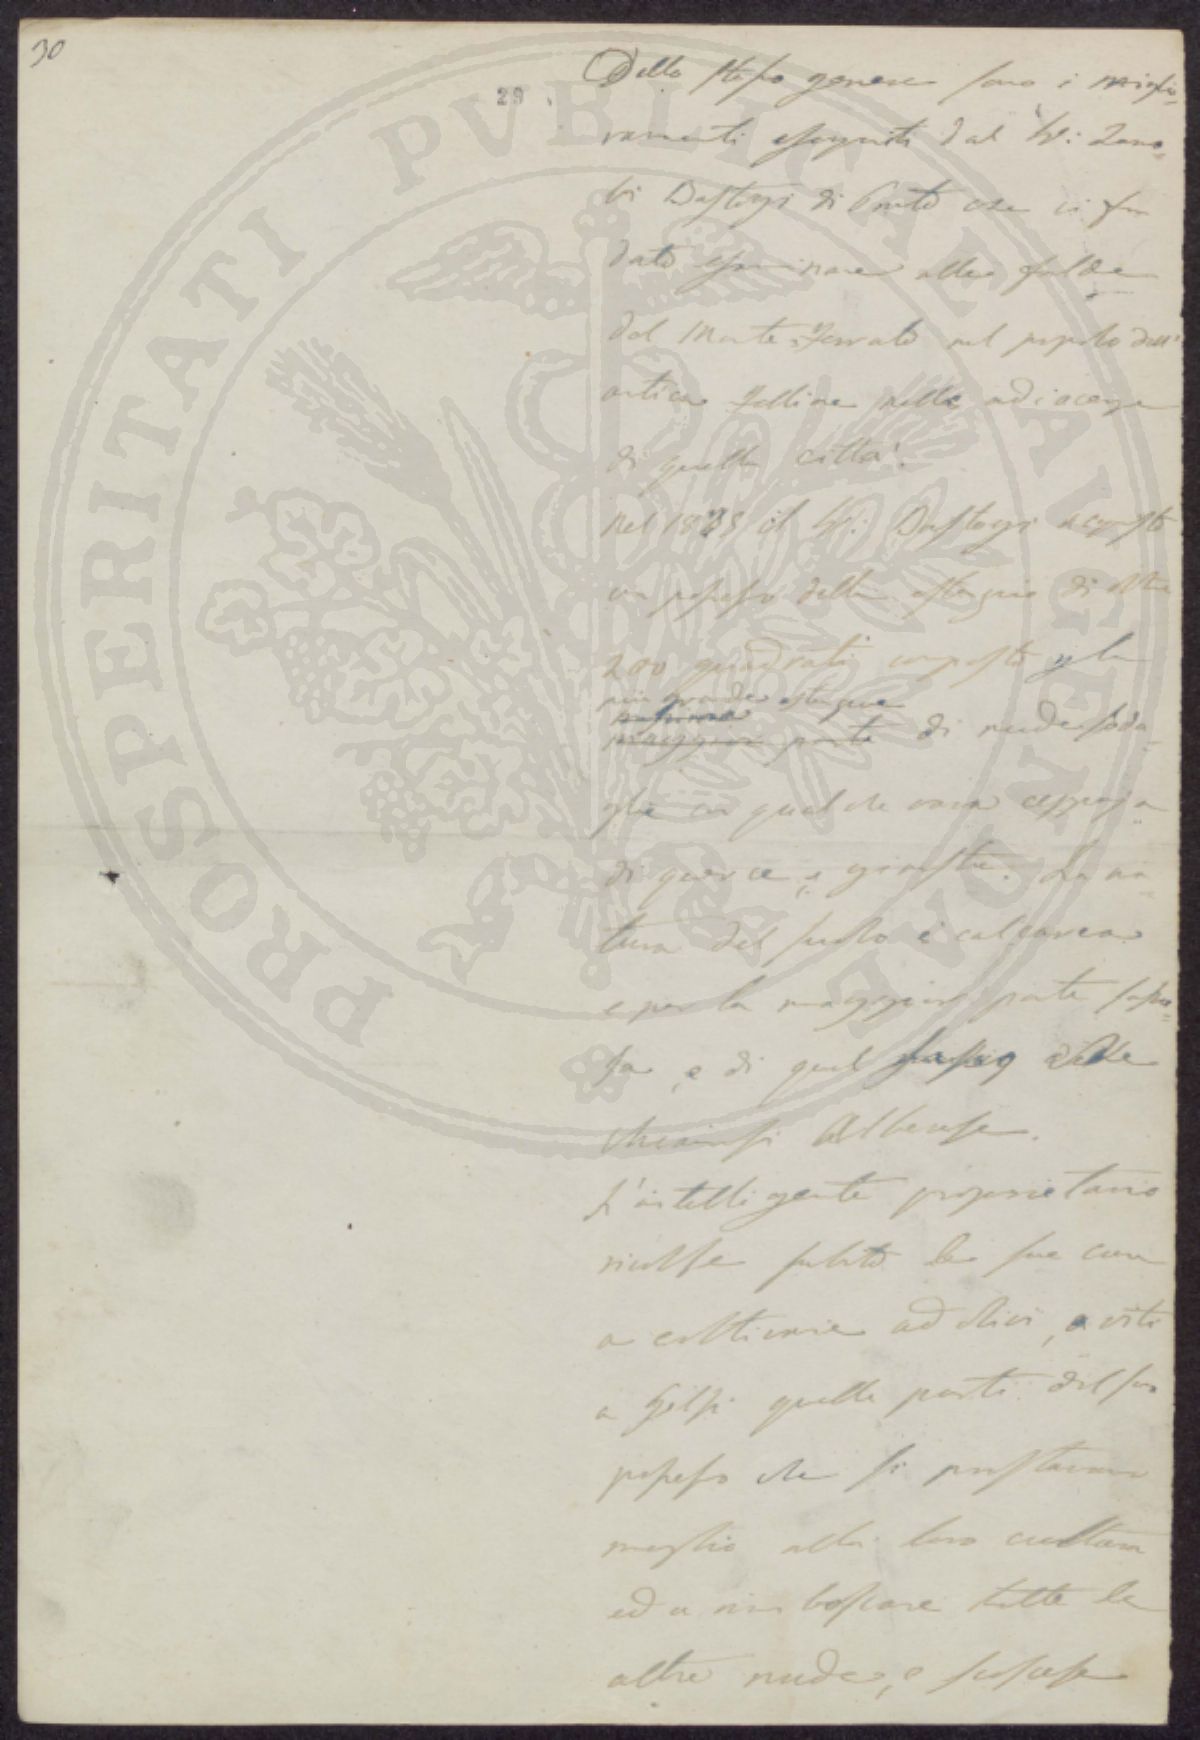 30
29
Dello stesso genere sono i miglio-
ramenti eseguiti dal Sig: Zano-
bi Dastogi di Prato che ci fu
dato esaminare alle falde
del Monte Ferrato nel popolo dell'
antica Felline nelle adiacenze
di quella città.
Nel 1828 il Sig: Dastogi acquistò
un possesso della estensione di oltre
200 quadrati composto nella
più grande estensione
maggior parte di nude soda-
glie con qualche rara ceppaja
di querce, e ginestre. La na-
tura del suolo è calcarea
e per la maggior parte sasso-
sa, e di quel sasso che
chiamasi Alberese.
L'intelligente proprietario
rivolse subito le sue cure
a coltivare ad olivi, a viti
a Gelsi quelle parti del suo
possesso che si prestavano
meglio alla loro cultura
ed a rimboscare tutte le
altre nude, e scoscese
PROSPERITATI PVBLICAE AVGENDAE